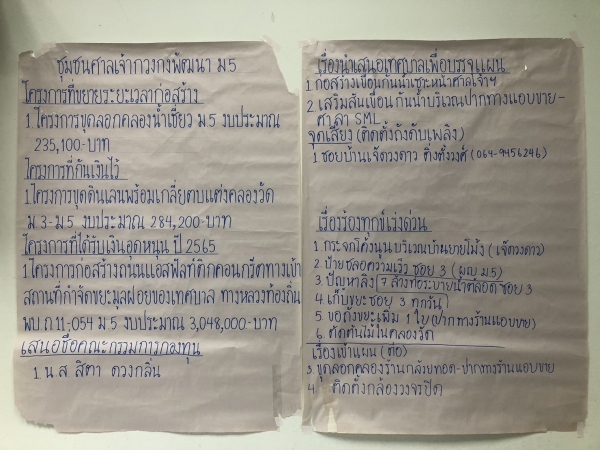 ชุมชนศาลเจ้ากวงกงพัฒนา ม.5
โครงการที่ขยายระยะเวลาก่อสร้าง
1.โครงการขุดลอกคลองน้ำเชี่ยว ม.5 งบประมาณ
235,100-บาท
โครงการที่กันเงินไว้
1.โครงการขุดดินเลนพร้อมเกลี่ยตบแต่งคลองวัด
ม.3-ม.5 งบประมาณ 284,200-บาท
โครงการที่ได้รับเงินอุดหนุน ปี 2565
1.โครงการก่อสร้างถนนแอสฟัลท์ติกคอนกรีตทางเข้า
สถานที่กำจัดขยะมูลฝอยของเทศบาล ทางหลวงท้องถิ่น
พบ.ถ 11-054 ม.5 งบประมาณ 3,048,000-บาท
เสนอชื่อคณะกรรมการกองทุน
1. น.ส สิตา ดวงกลิ่น
เรื่องนำเสนอเทศบาลเพื่อบรรจุแผน
1 ก่อสร้างเขื่อนกันน้ำเซาะหน้าศาลเจ้าฯ
2. เสริมสันเขื่อนกันน้ำบริเวณปากทางแอบขาย-
ศาลา SML
จุดเสี่ยง (ติดตั้งถังดับเพลิง)
1 ซอยบ้านเจ๊ดวงดาว ติ่งตั้งวงศ์ (064-9456246)
เรื่องร้องทุกข์เร่งด่วน
1. กระจกโค้งนูน บริเวณบ้านยายโม้ง (เจ๊ดวงดาว)
2. ป้ายชลอความเร็ว ซอย 3 (ผญ ม.5)
3. ปัญหาลิง 7 ล้างท่อระบายน้ำตลอด ซอย 3
4. เก็บขยะซอย 3 ทุกวัน
5. ขอถังขยะเพิ่ม 1 ใบ (ปากทางร้านแอบขาย)
6. ตัดต้นไม้ในคลองวัด
เรื่องเข้าแผน (ต่อ)
3. ขุดลอกคลองร้านกล้วยทอด-ปากทางร้านแอบขาย
4 ติดตั้งกล้องวงจรปิด